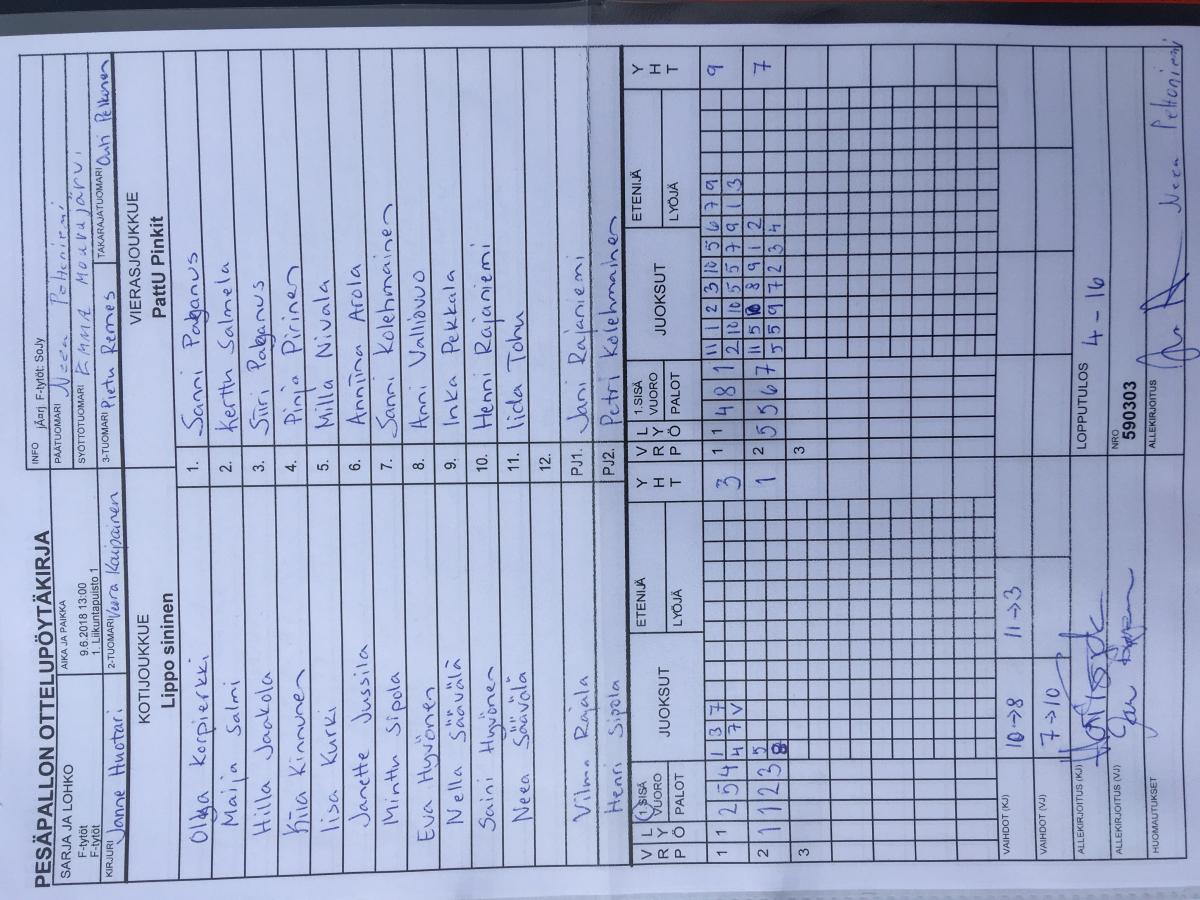 PESÄPALLON OTTELUPÖYTÄKIRJA
SARJA JA LOHKO
F-tytöt
F-tytöt
AIKA JA PAIKKA
9.6.2018 13:00
1. Liikuntapuisto 1
INFO järj. F-tytöt: SoJy
PÄÄTUOMARI Neea Peltoniemi
SYÖTTÖTUOMARI EMMA MOURUJÄRVI
KIRJURI Janne Huotari
2-TUOMARI Veera Kaipainen
3-TUOMARI Pietu Remes
TAKARAJATUOMARI Outi Pelkonen
KOTIJOUKKUE
Lippo sininen
VIERASJOUKKUE
PattU Pinkit
Olga Korpierkki 1. Sanni Palganus
Maija Salmi 2. Kerttu Salmela
Hilla Jaakola 3. Siiri Palganus
Kiia Kinnunen 4. Pinja Piirinen
Iisa Kurki 5. Milla Nivala
Janette Jussila 6. Anniina Arola
Minttu Sipola 7. Sanni Kolehmainen
Eva Hyvönen 8. Anni Valliovuo
Nella Säävälä 9. Inka Pekkala
Saini Hyvönen 10. Henni Rajaniemi
Neea Säävälä 11. Iida Tohu
12.
Vilma Rajala PJ1. Jani Rajaniemi
Henri Sipola PJ2. Petri Kolehmainen
VRP LYÖ 1.SISÄVUORO PALOT JUOKSUT ETENIJÄ LYÖJÄ YHT VRP LYÖ 1.SISÄVUORO PALOT JUOKSUT ETENIJÄ LYÖJÄ YHT
1 1 2 5 4 1 3 7 3 1 1 4 8 1 11 1 2 3 10 5 6 7 9 9
4 7 V 2 10 10 5 5 7 9 1 3
2 1 1 2 3 5 1 2 5 5 6 7 11 5 10 8 9 1 2 7
8 5 5 9 7 2 3 4
3 3
VAIHDOT (KJ) 10→8 11→3
VAIHDOT (VJ) 7→10
ALLEKIRJOITUS (KJ)
LOPPUTULOS 4 - 16
ALLEKIRJOITUS (VJ)
NRO
590303
HUOMAUTUKSET
ALLEKIRJOITUS Neea Peltoniemi